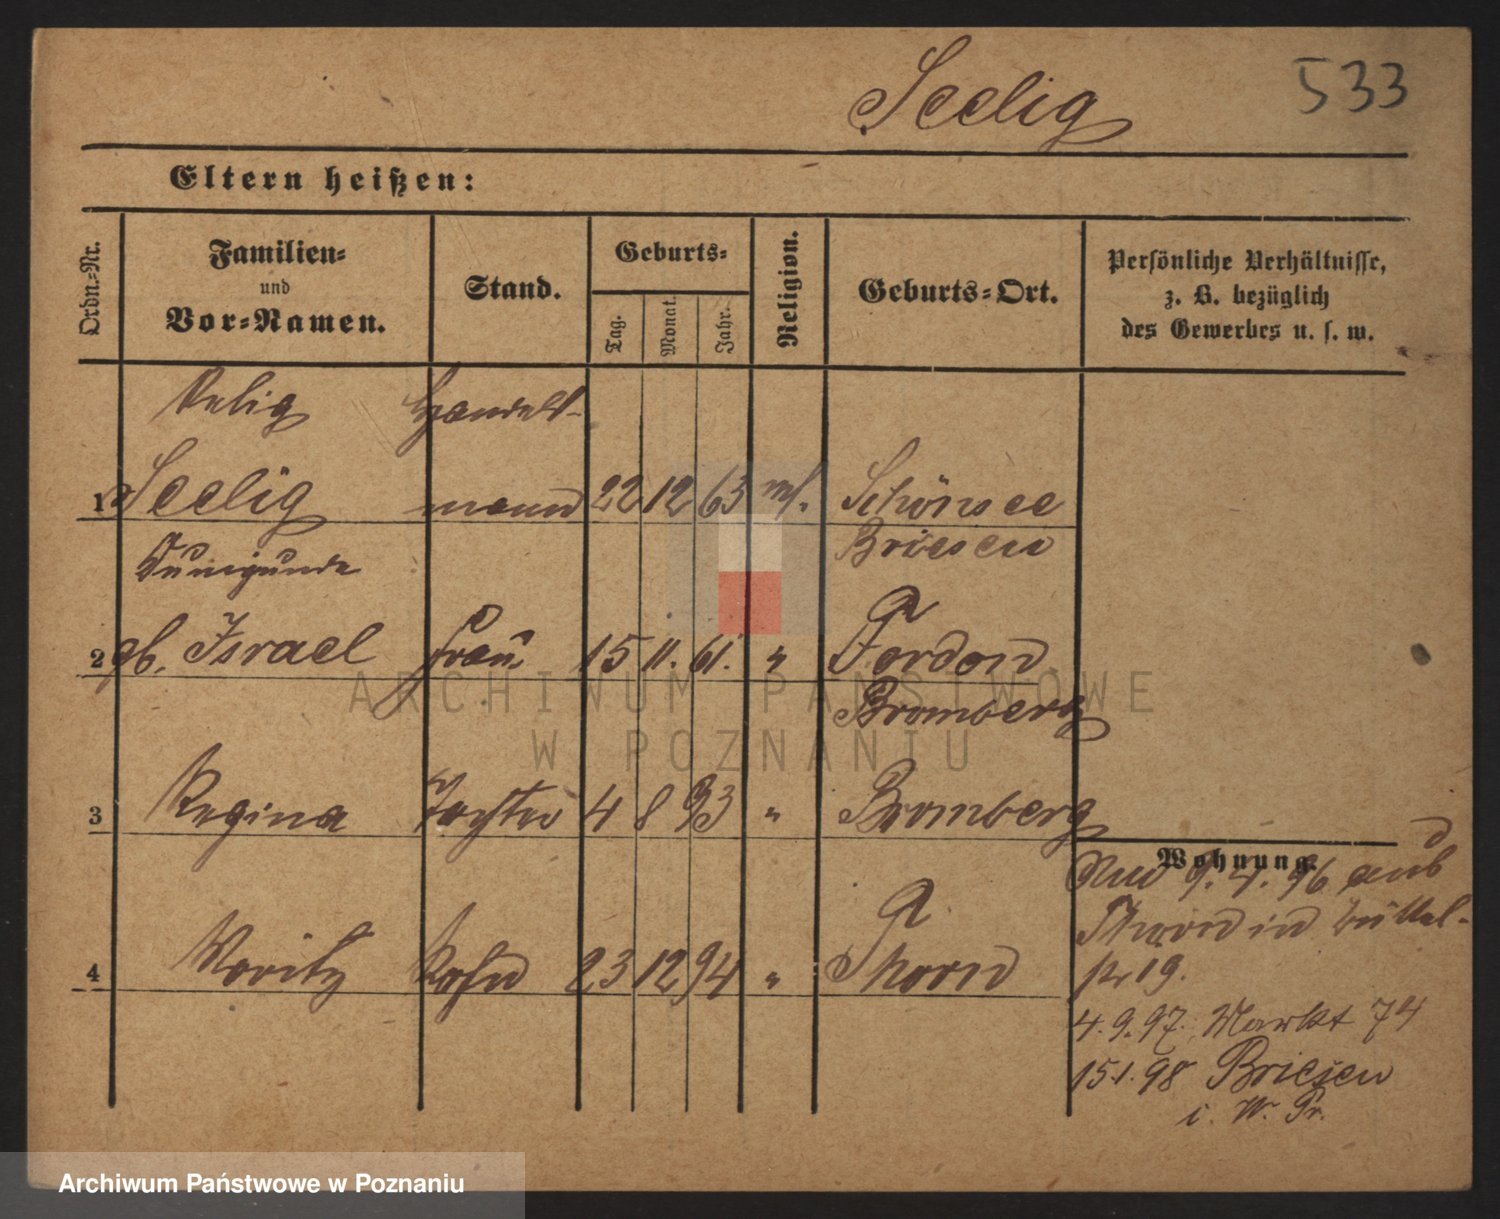 Seelig 533
Eltern heißen:
Ordn.-Nr.
Familien-
und
Vor-Namen.
Stand.
Geburts-
Tag.
Monat.
Jahr.
Religion.
Geburts-Ort.
Persönliche Verhältnisse,
z. B. bezüglich
des Gewerbes u. s. w.
Selig Handels-
1 Seelig mann 22 12 63 mos. Schönsee
Briesen
Kunigunde
2 gb. Israel Frau 15 11. 61. " Fordon
Bromberg
3 Regina Tochter 4 8 93 " Bromberg
Wohnung.
9. 4. 96 aus
Thorn in Büttel-
4 Moritz Sohn 23 12 94 " Thorn
str 19.
4. 9. 97. Markt 74
15.1. 98 Briesen
i. W. Pr.
ARCHIWUM PAŃSTWOWE
W POZNANIU
Archiwum Państwowe w Poznaniu